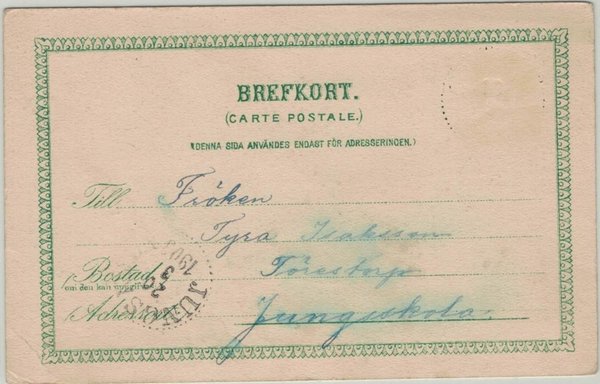 BREFKORT.
(CARTE POSTALE.)
(DENNA SIDA ANVÄNDES ENDAST FÖR ADRESSERINGEN.)
Till Fröken
Tyra Isaksson
Bostad
om den kan uppgifvas
Adressort
190